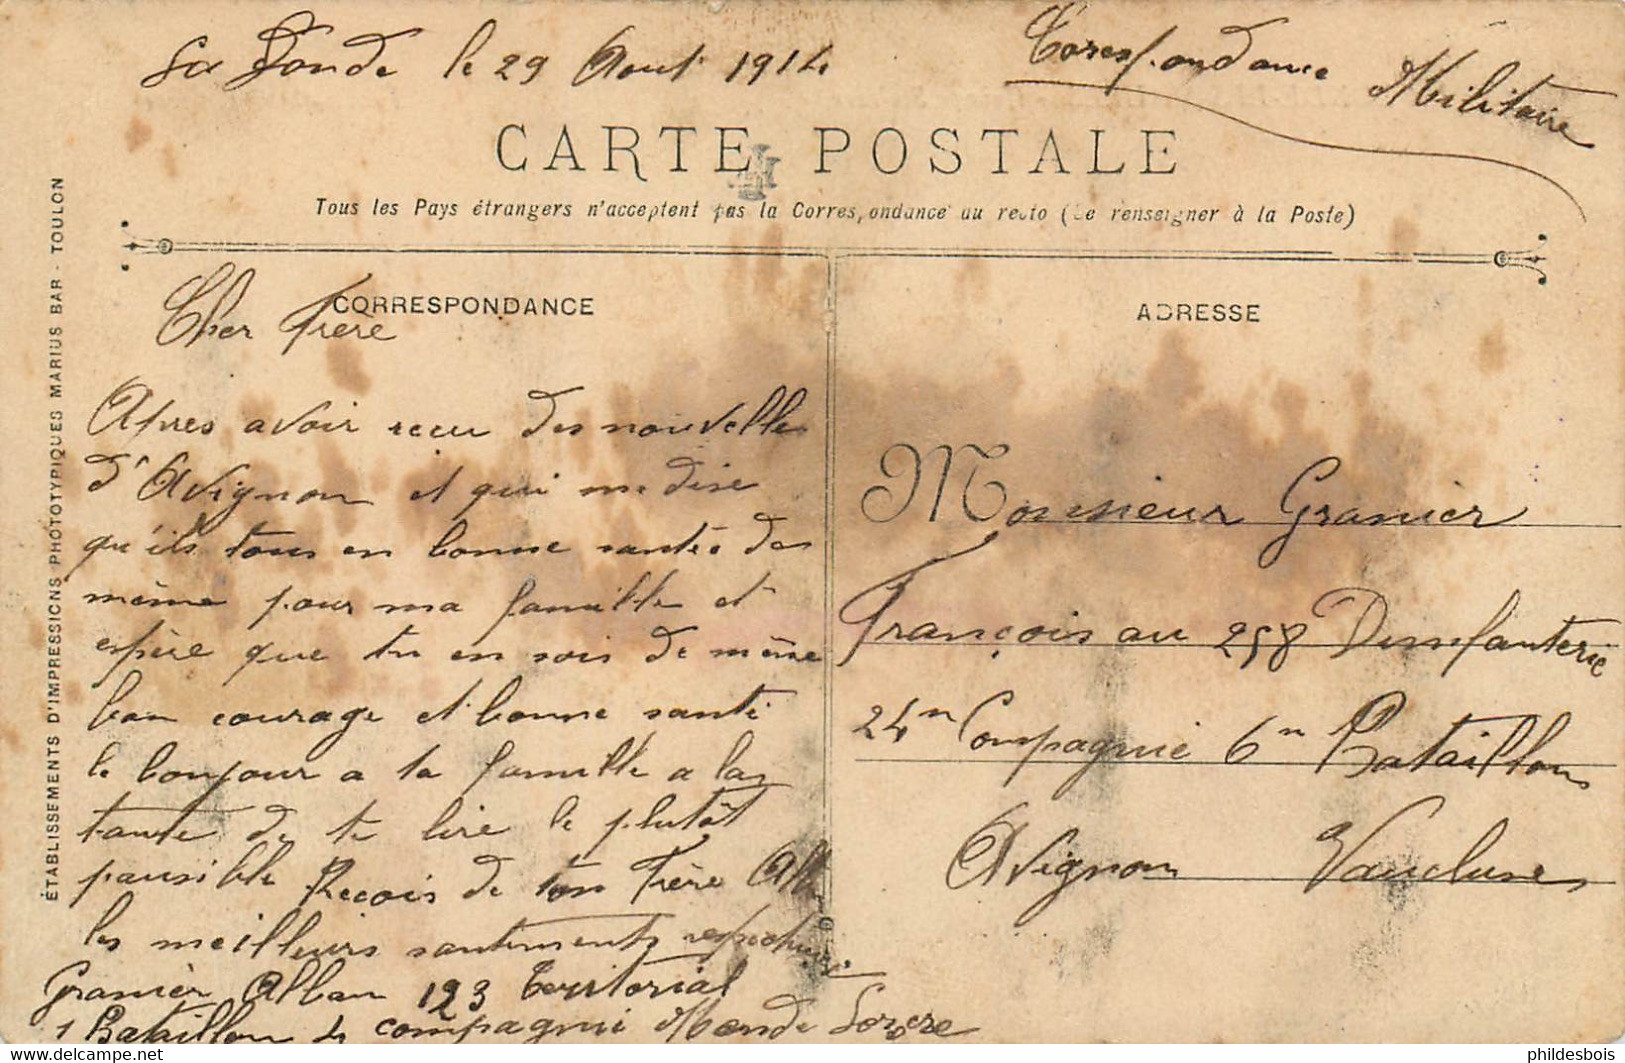 La Londe le 29 Aout 1914
Corespondance Militaire
CARTE POSTALE
Tous les Pays étrangers n'acceptent pas la Correspondance au recto (Se renseigner à la Poste)
ÉTABLISSEMENTS D'IMPRESSIONS PHOTOTYPIQUES MARIUS BAR - TOULON
CORRESPONDANCE
Cher Frere
Apres avoir recu des nouvelles
d'Avignon et qui me dise
qu'ils tous en bonne santée de
même pour ma famille et
espère que tu en sois de même
bon courage et bonne santé
le bonjour a ta famille a la
tante de te lire le plutôt
pausible Recois de ton Frère
les meilleurs santiments
Granier Alban 123 territorial
1 Bataillon compagnie Mende Lozere
ADRESSE
Monsieur Granier
François au 258 Dinfanterie
24n Compagnie 6n Bataillons
Avignon Vaucluse
phildesbois